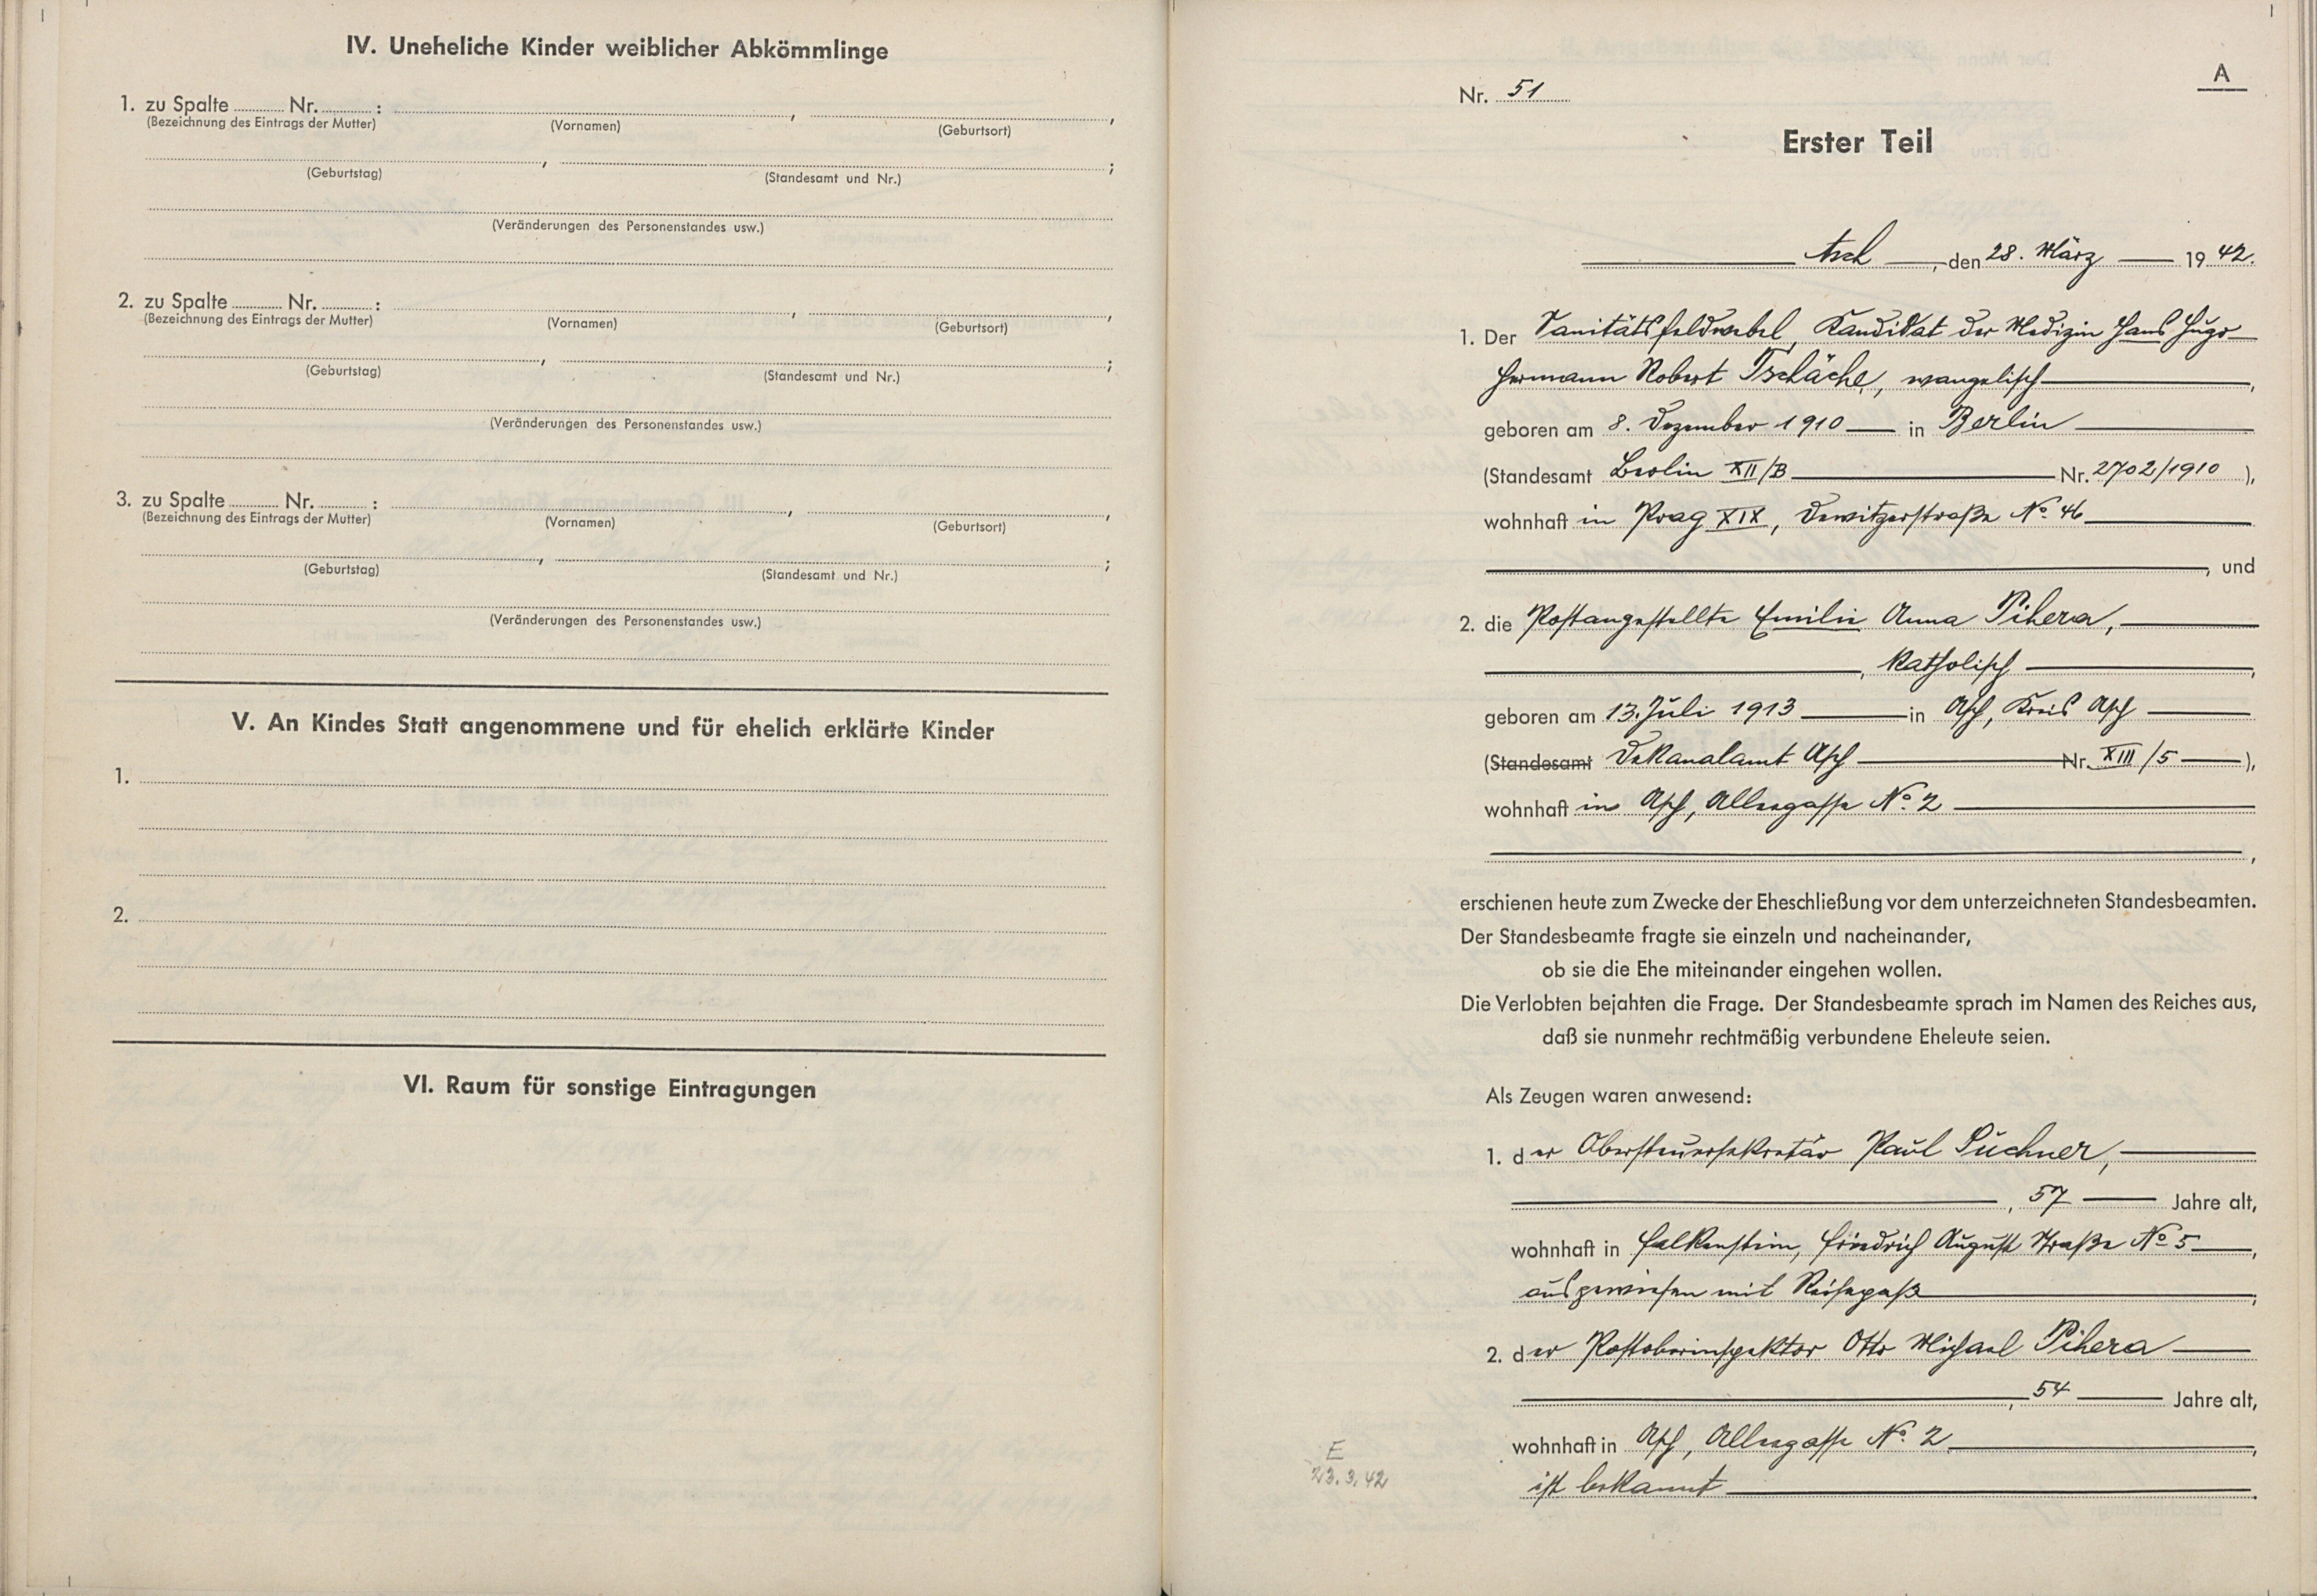 IV. Uneheliche Kinder weiblicher Abkömmlinge
1. zu Spalte ........ Nr. ........ :
(Bezeichnung des Eintrags der Mutter) (Vornamen) , (Geburtsort) ,
(Geburtstag) , (Standesamt und Nr.) ;
(Veränderungen des Personenstandes usw.)
2. zu Spalte ........ Nr. ........ :
(Bezeichnung des Eintrags der Mutter) (Vornamen) , (Geburtsort) ,
(Geburtstag) , (Standesamt und Nr.) ;
(Veränderungen des Personenstandes usw.)
3. zu Spalte ........ Nr. ........ :
(Bezeichnung des Eintrags der Mutter) (Vornamen) , (Geburtsort) ,
(Geburtstag) , (Standesamt und Nr.) ;
(Veränderungen des Personenstandes usw.)
V. An Kindes Statt angenommene und für ehelich erklärte Kinder
1.
2.
VI. Raum für sonstige Eintragungen
A
Nr. 51
Erster Teil
Asch, den 28. März 1942.
1. Der Sanitätsfeldwebel, Kandidat der Medizin Hans Hugo
Hermann Robert Tschäche, evangelisch,
geboren am 8. Dezember 1910 in Berlin
(Standesamt Berlin XII/B Nr. 2702/1910),
wohnhaft in Prag XIX, Dewitzerstraße No. 46
, und
2. die Postangestellte Emilie Anna Pihera,
, katholisch,
geboren am 13. Juli 1913 in Asch, Kreis Asch
(Standesamt Dekanalamt Asch Nr. XIII/5),
wohnhaft in Asch, Alleegasse No. 2
,
erschienen heute zum Zwecke der Eheschließung vor dem unterzeichneten Standesbeamten.
Der Standesbeamte fragte sie einzeln und nacheinander,
ob sie die Ehe miteinander eingehen wollen.
Die Verlobten bejahten die Frage. Der Standesbeamte sprach im Namen des Reiches aus,
daß sie nunmehr rechtmäßig verbundene Eheleute seien.
Als Zeugen waren anwesend:
1. der Obersteuersekretär Paul Puchner,
, 57 Jahre alt,
wohnhaft in Falkenstein, Friedrich August Straße No 5,
ausgewiesen mit Reisepaß,
2. der Postoberinspektor Otto Michael Pihera
, 54 Jahre alt,
wohnhaft in Asch, Alleegasse No. 2,
ist bekannt.
E
23.3.42